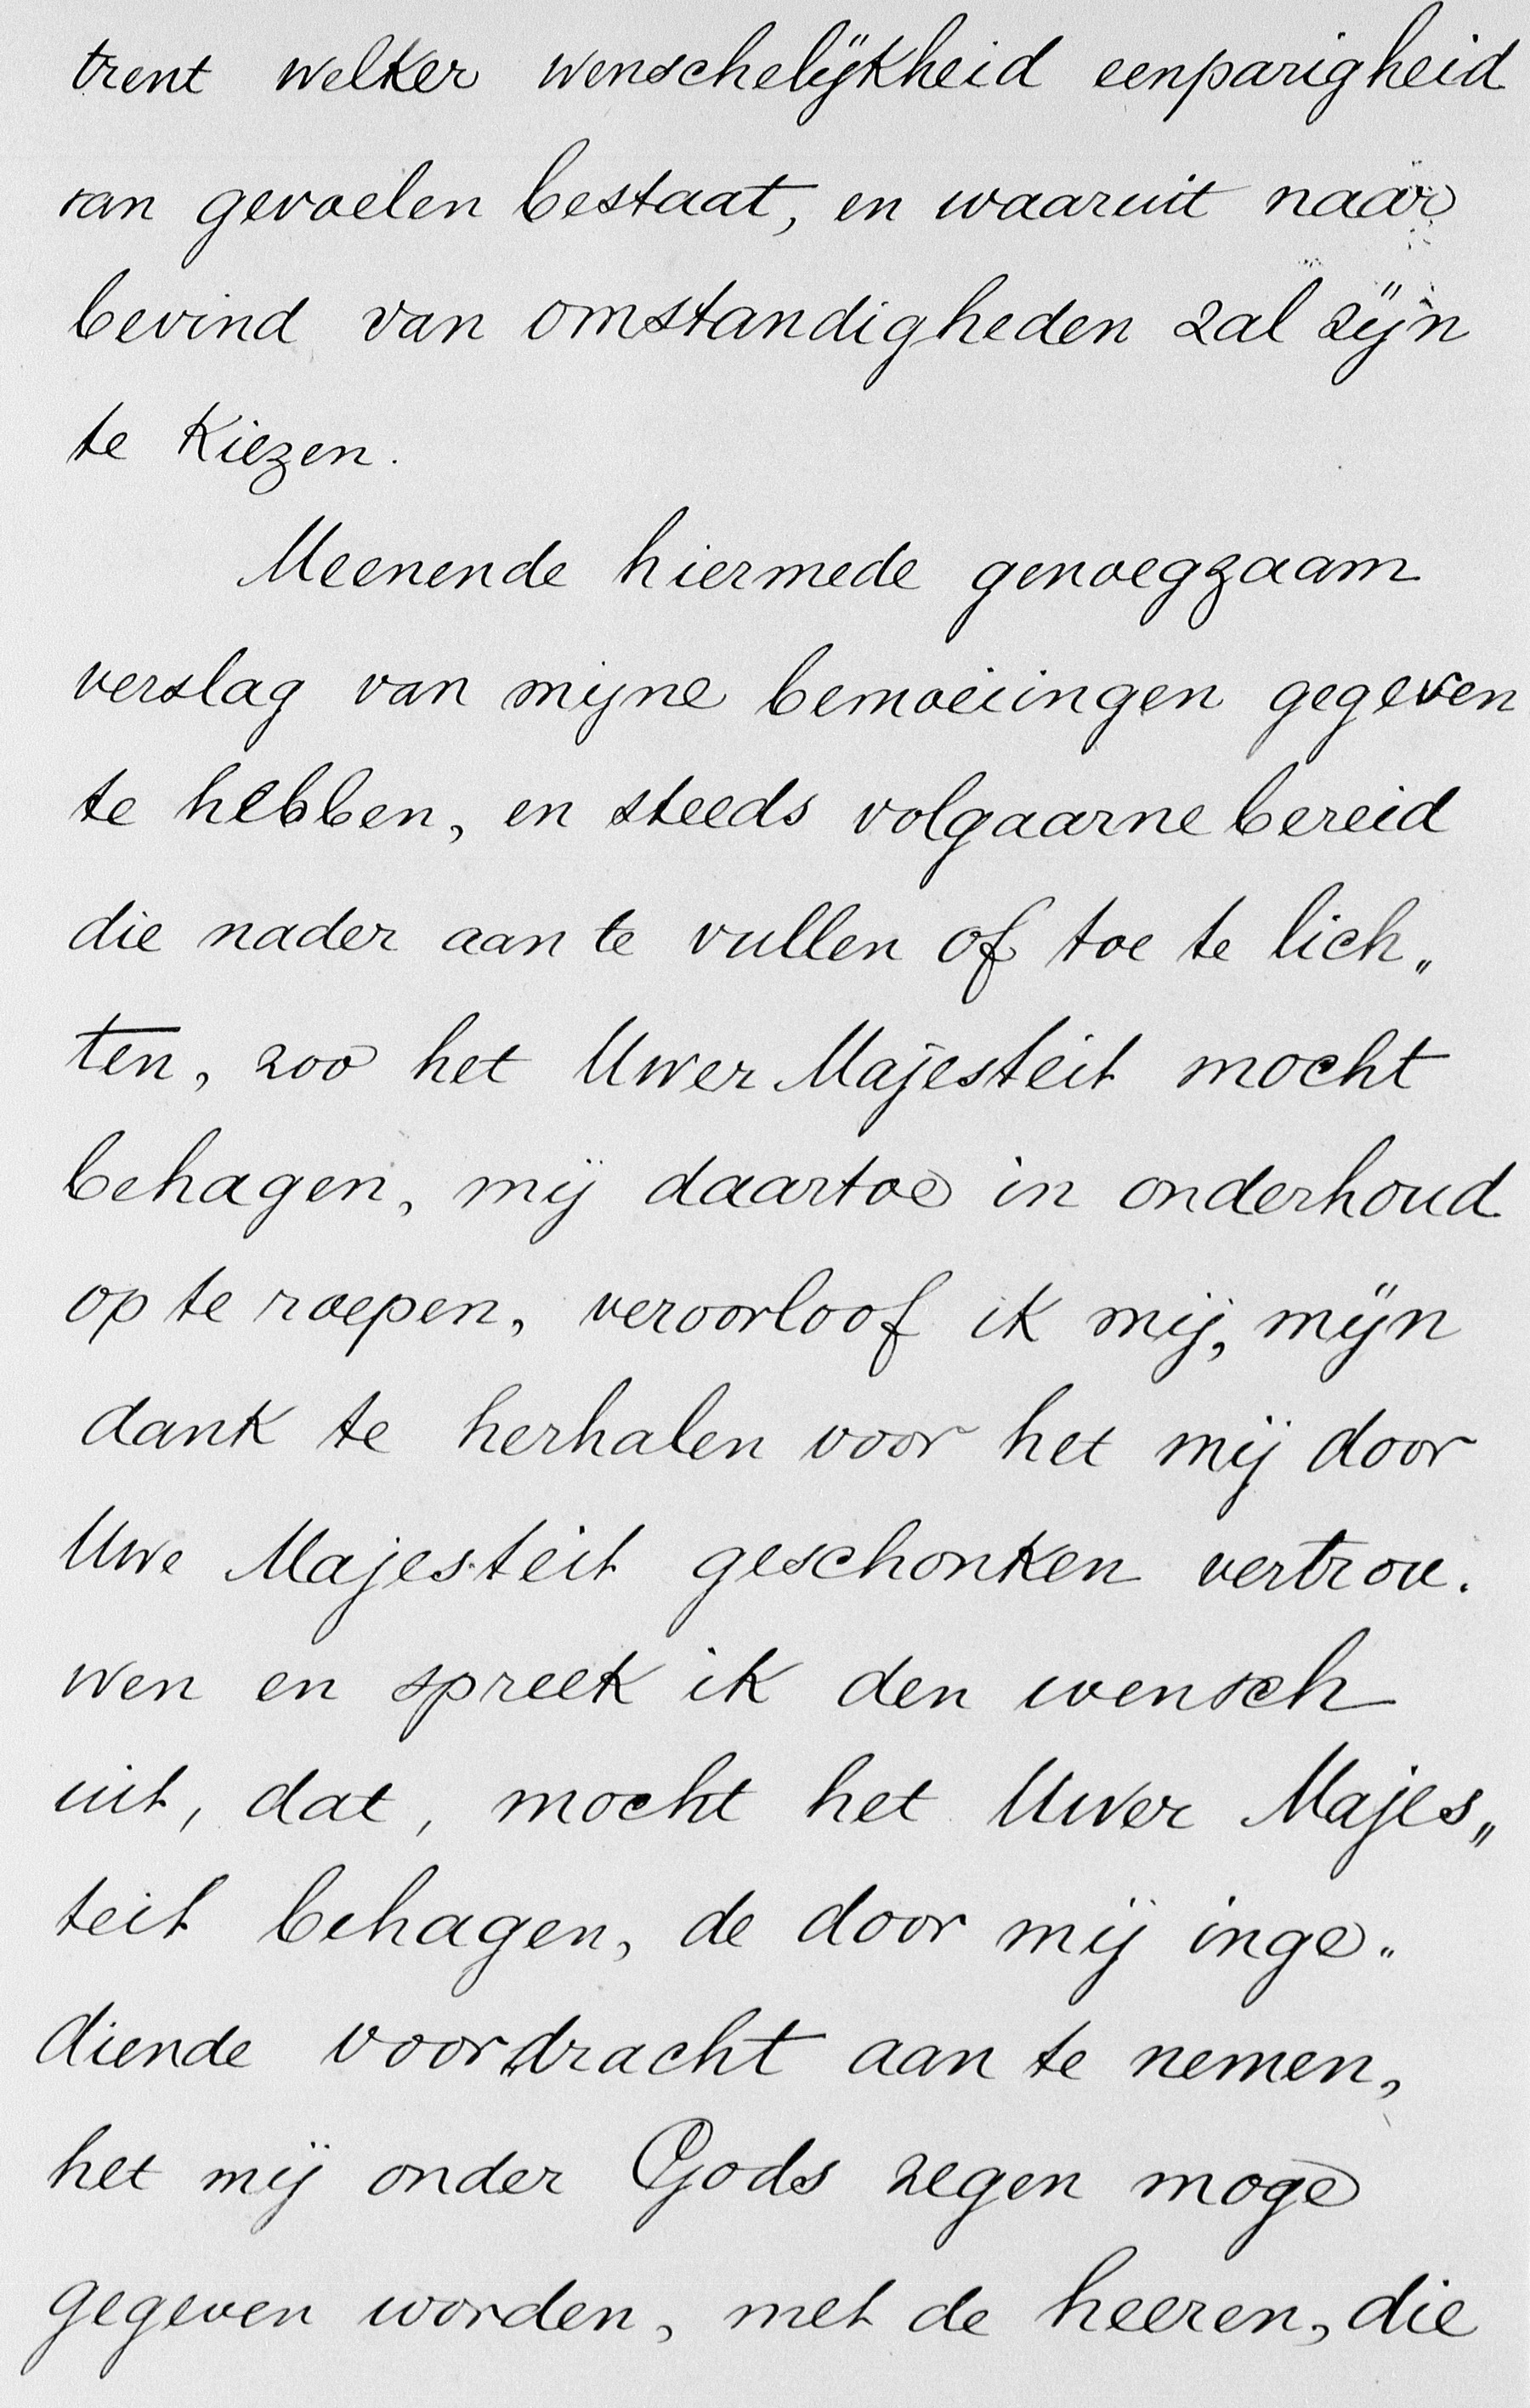 trent welker wenschelijkheid eenparigheid
van gevoelen bestaat, en waaruit naar
bevind van omstandigheden zal zijn
te kiezen.
Meenende hiermede genoegzaam
verslag van mijne bemoeiingen gegeven
te hebben, en steeds volgaarne bereid
die nader aan te vullen of toe te lich„
ten, zoo het Uwer Majesteit mocht
behagen, mij daartoe in onderhoud
op te roepen, veroorloof ik mij, mijn
dank te herhalen voor het mij door
Uwe Majesteit geschonken vertrou.
wen en spreek ik den wensch
uit, dat, mocht het Uwer Majes„
teit behagen, de door mij inge„
diende voordracht aan te nemen,
het mij onder Gods zegen moge
gegeven worden, met de heeren, die